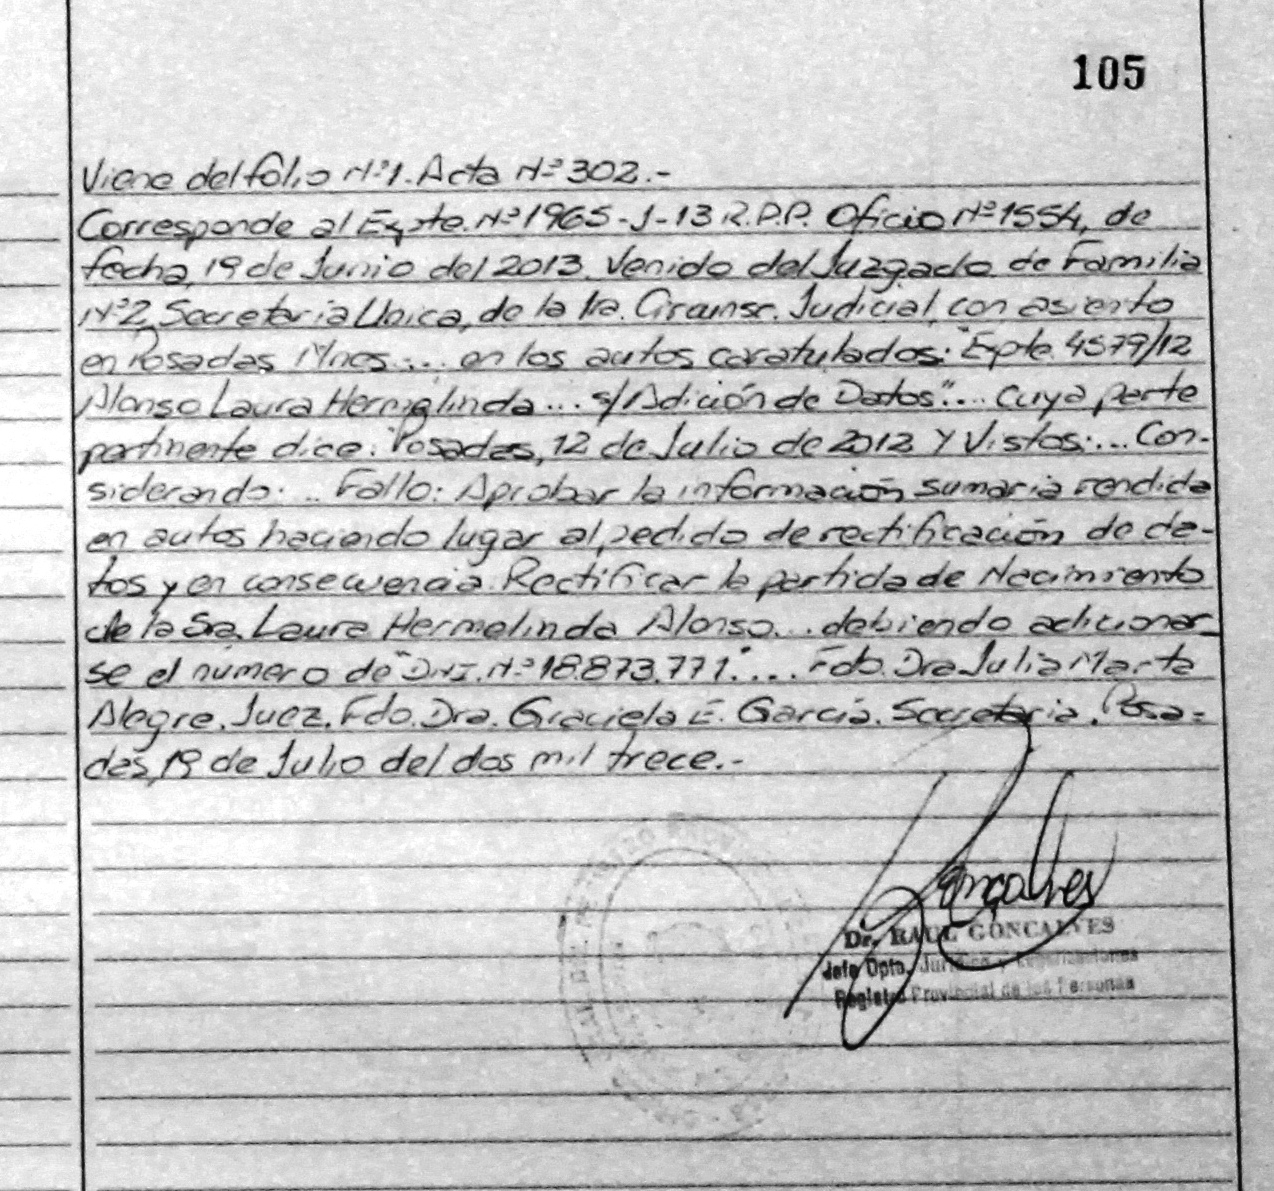 105
Viene del folio Nº1. Acta Nº 302.-
Corresponde al Expte. Nº 1965-J-13 R.P.P. Oficio Nº 1554, de
fecha, 19 de Junio del 2013. Venido del Juzgado de Familia
Nº2, Secretaria Unica, de la 1ra. Circunsc. Judicial, con asiento
en Posadas Mnes.... en los autos caratulados: "Expte. 4579/12
Alonso Laura Hermelinda... s/Adición de Datos".... Cuya parte
pertinente dice: Posadas, 12 de Julio de 2012 Y Vistos:... Con-
siderando:... Fallo: Aprobar la información sumaria rendida
en autos haciendo lugar al pedido de rectificación de da-
tos y en consecuencia Rectificar la partida de Nacimiento
de la Sra. Laura Hermelinda Alonso... debiendo adicionar-
se el número de "DNI. Nº 18.873.771".... Fdo. Dra Julia Marta
Alegre. Juez. Fdo. Dra. Graciela E. García. Secretaria. Posa-
das, 19 de Julio del dos mil trece.-
Goncalves
Dr. RAUL GONCALVES
Jefe Dpto. Jurídico y Legalizaciones
Registro Provincial de las Personas